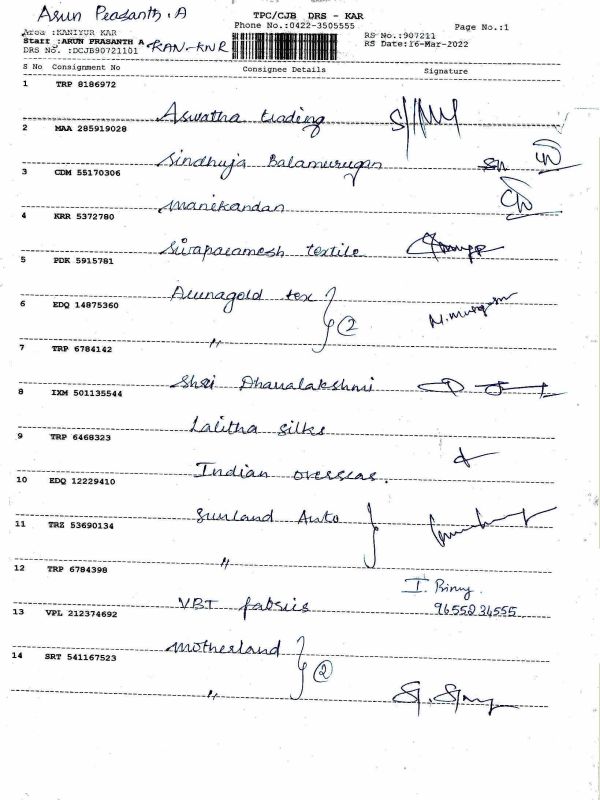 Arun Prasanth .A
TPC/CJB DRS - KAR
Phone No.:0422-3505555
Page No.:1
Area :KANIYUR KAR
RS No.:907211
Staff :ARUN PRASANTH A KAN-KNR
RS Date:16-Mar-2022
DRS No. :DCJB90721101
S No Consignment No Consignee Details Signature
1 TRP 8186972
Aswatha trading
2 MAA 285919028
Sindhuja Balamurugan
3 CDM 55170306
Manikandan
4 KRR 5372780
Sivaparamesh textile
5 PDK 5915781
Arunagold tex
6 EDQ 14875360
(2) N.Murugesan
"
7 TRP 6784142
Shri Dhanalakshmi
8 IXM 501135544
Lalitha silks
9 TRP 6468323
Indian overseas.
10 EDQ 12229410
Sunland Auto
11 TRZ 53690134
"
12 TRP 6784398
VBT fabrics
9655234555
13 VPL 212374692
Motherland
14 SRT 541167523
(2)
"